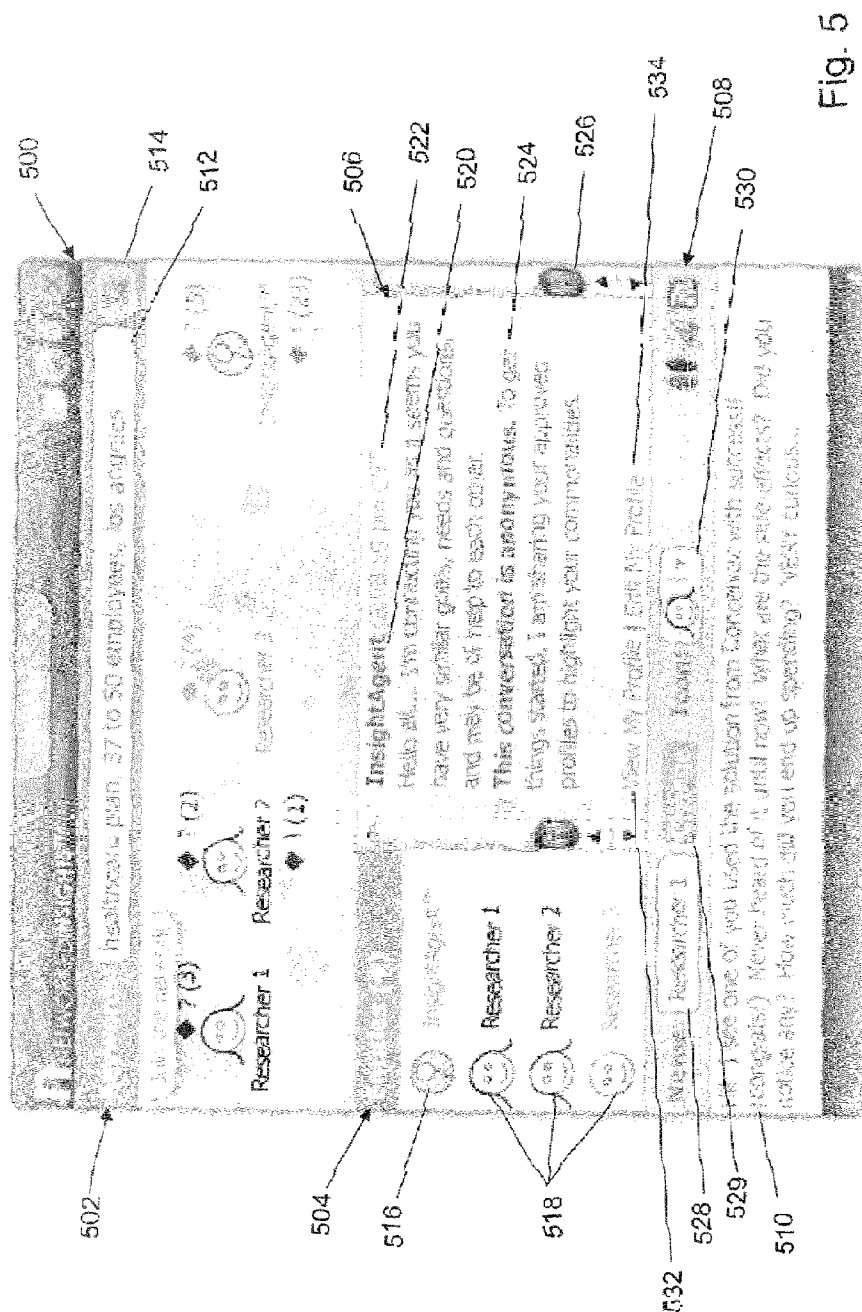 500
514
512
502
healthcare plan, 37 to 50 employees, los angeles
7 (3)
7 (2)
Researcher 1
Researcher 2
1 (1)
504
506
522
520
524
526
534
508
530
516
518
532
528
529
510
InsightAgent
Researcher 1
Researcher 2
Researcher 3
InsightAgent
Hello all... I'm connecting you as it seems you
have very similar goals, needs and questions
and may be of help to each other.
This conversation is anonymous. To get
things started, I am sharing your approved
profiles to highlight your commonalities.
View My Profile | Edit My Profile
My name: Researcher 1
I see one of you used the solution from Conceivex with success!!
(congrats!) Never heard of it until now! What are the side effects? Did you
notice any? How much did you end up spending? VERY curious...
Fig. 5